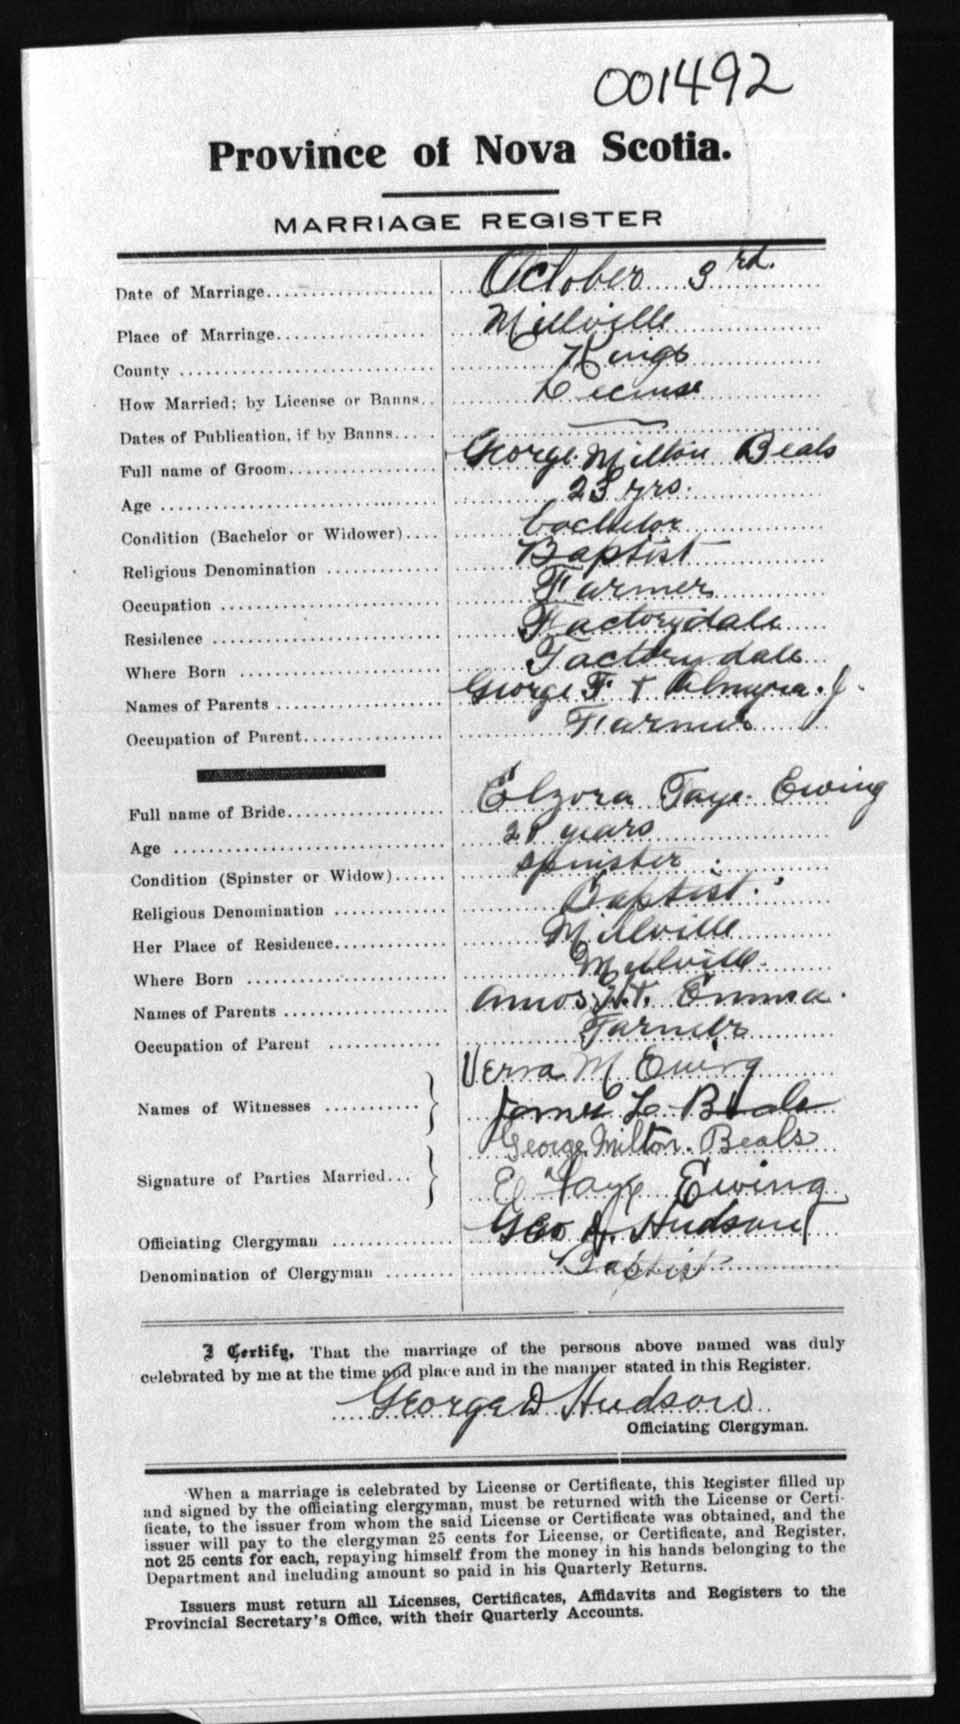 001492
Province of Nova Scotia.
MARRIAGE REGISTER
Date of Marriage.................... October 3rd.
Place of Marriage................... Millville
County ............................. Kings
How Married; by License or Banns.. License
Dates of Publication, if by Banns..... —
Full name of Groom................. George Milton Beals
Age ............................... 23 yrs.
Condition (Bachelor or Widower).... bachelor
Religious Denomination ............. Baptist
Occupation ......................... Farmer
Residence .......................... Factorydale
Where Born ......................... Factorydale
Names of Parents ................... George F. + Almyra. J.
Occupation of Parent................ Farmer
Full name of Bride.................. Elzora Faye Ewing
Age ................................ 21 years
Condition (Spinster or Widow)...... spinster
Religious Denomination ............. Baptist.
Her Place of Residence............. Millville
Where Born ......................... Millville.
Names of Parents ................... Amos H. + Emma.
Occupation of Parent ............... Farmer
Names of Witnesses ........... } Verna M Ewing
James L Beals
Signature of Parties Married... } George Milton. Beals
E Faye Ewing
Officiating Clergyman .............. Geo D. Hudson
Denomination of Clergyman ........ Baptist
I Certify, That the marriage of the persons above named was duly
celebrated by me at the time and place and in the manner stated in this Register.
George D Hudson
Officiating Clergyman.
When a marriage is celebrated by License or Certificate, this Register filled up
and signed by the officiating clergyman, must be returned with the License or Certi-
ficate, to the issuer from whom the said License or Certificate was obtained, and the
issuer will pay to the clergyman 25 cents for License, or Certificate, and Register,
not 25 cents for each, repaying himself from the money in his hands belonging to the
Department and including amount so paid in his Quarterly Returns.
Issuers must return all Licenses, Certificates, Affidavits and Registers to the
Provincial Secretary's Office, with their Quarterly Accounts.